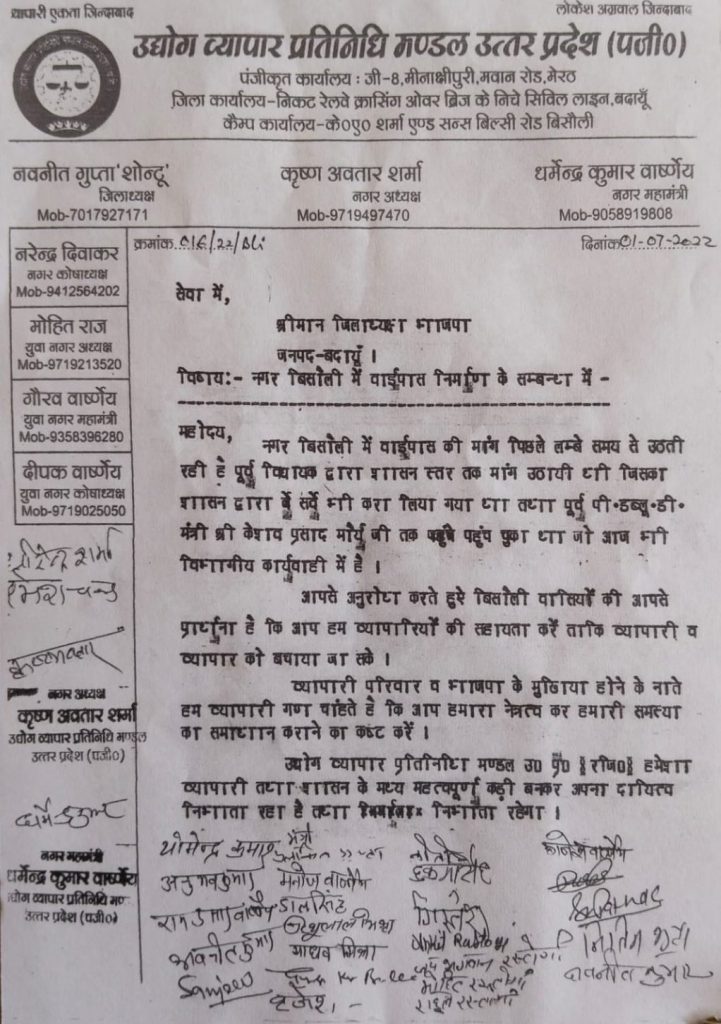 व्यापारी एकता जिन्दाबाद
लोकेश अग्रवाल जिन्दाबाद
उद्योग व्यापार प्रतिनिधि मण्डल उत्तर प्रदेश (पजी०)
पंजीकृत कार्यालय : जी-8,मीनाक्षीपुरी,मवान रोड,मेरठ
जिला कार्यालय-निकट रेलवे क्रासिंग ओवर ब्रिज के निचे सिविल लाइन,बदायूँ
कैम्प कार्यालय-के०ए० शर्मा एण्ड सन्स बिल्सी रोड बिसौली
नवनीत गुप्ता'शोन्टू'
जिलाध्यक्ष
Mob-7017927171
कृष्ण अवतार शर्मा
नगर अध्यक्ष
Mob-9719497470
धर्मेन्द्र कुमार वार्ष्णेय
नगर महामंत्री
Mob-9058919808
नरेन्द्र दिवाकर
नगर कोषाध्यक्ष
Mob-9412564202
मोहित राज
युवा नगर अध्यक्ष
Mob-9719213520
गौरव वार्ष्णेय
युवा नगर महामंत्री
Mob-9358396280
दीपक वार्ष्णेय
युवा नगर कोषाध्यक्ष
Mob-9719025050
क्रमांक.016/22/Bli
दिनांक01-07-2022
सेवा में,
श्रीमान जिलाध्यक्ष भाजपा
जनपद-बदायूँ ।
विषय:- नगर बिसौली में वाईपास निर्माण के सम्बन्ध में -
महोदय,
नगर बिसौली में वाईपास की मांग पिछले लम्बे समय से उठती
रही है पूर्व विधायक द्वारा शासन स्तर तक मांग उठायी थी जिसका
शासन द्वारा सर्वे भी करा लिया गया था तथा पूर्व पी.डब्लू.डी.
मंत्री श्री केशव प्रसाद मौर्य जी तक पहुंच चुका था जो आज भी
विभागीय कार्यवाही में है ।
आपसे अनुरोध करते हुऐ बिसौली वासियों की आपसे
प्रार्थना है कि आप हम व्यापारियों की सहायता करें ताकि व्यापारी व
व्यापार को बचाया जा सके ।
व्यापारी परिवार व भाजपा के मुखिया होने के नाते
हम व्यापारी गण चाहते है कि आप हमारा नेत्रत्व कर हमारी समस्या
का समाधान कराने का कष्ट करें ।
उद्योग व्यापार प्रतिनिधि मण्डल उ0 प्र0 [रजि0] हमेशा
व्यापारी तथा शासन के मध्य महत्वपूर्ण कड़ी बनकर अपना दायित्व
निभाता रहा है तथा निभाता रहेगा ।
शर्मा
कृष्णावतार
नगर अध्यक्ष
कृष्ण अवतार शर्मा
उद्योग व्यापार प्रतिनिधि मण्डल
उत्तर प्रदेश (पजी०)
नगर महामंत्री
धर्मेन्द्र कुमार वार्ष्णेय
उद्योग व्यापार प्रतिनिधि मण्ड
उत्तर प्रदेश (पजी०)
योगेन्द्र कुमार
मंत्री
मनोज वार्ष्णेय
माधव मिश्रा
Sanjeev
बृजेश
मोहित रस्तोगी
राहुल रस्तोगी
नवनीत कुमार